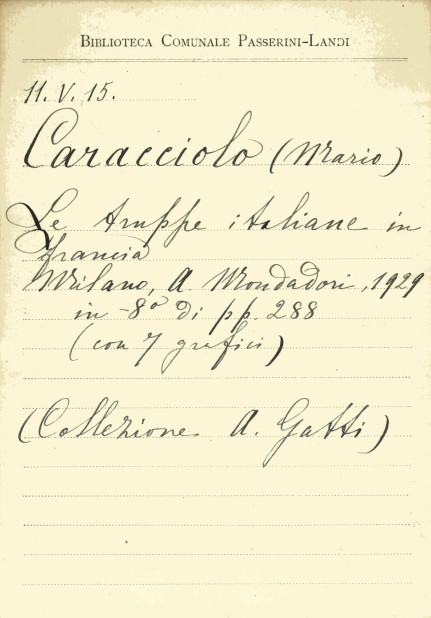 BIBLIOTECA COMUNALE PASSERINI-LANDI
11. V. 15.
Caracciolo (Mario)
Le truppe italiane in
Francia
Milano, A Mondadori, 1929
in -8° di pp. 288
(con 7 grafici)
(Collezione A. Gatti)